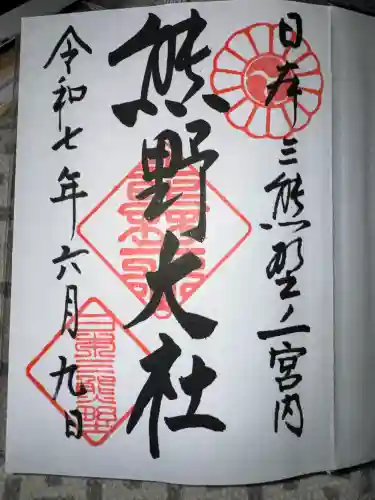 日本三熊野ノ一宮内
熊野大社
令和七年六月九日